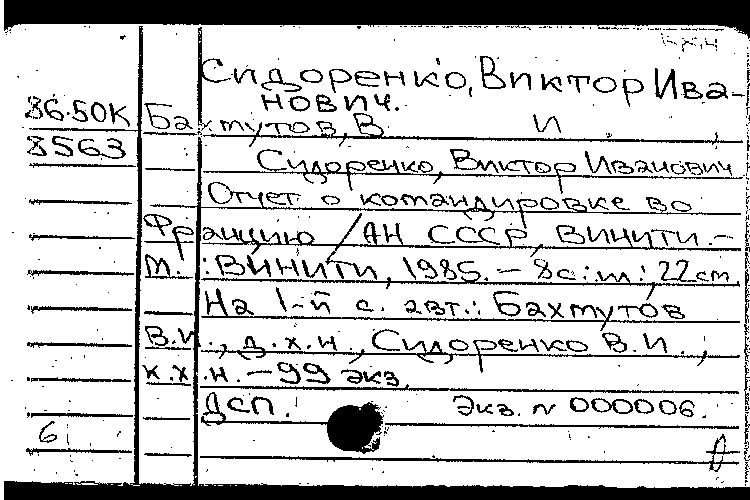 к.х.н
Сидоренко, Виктор Ива-
нович.
86.50К Бахтутов, В. И
8563
Сидоренко, Виктор Иванович
Отчет о командировке во
Францию / АН СССР, ВИНИТИ. -
М. : ВИНИТИ, 1985. - 8с : ил ; 22 см.
На 1-й с. авт.: Бахтутов
В.И., д.х.н., Сидоренко В.И.,
к.х.н. - 99 экз.
ДСП. Экз. N 000006.
6